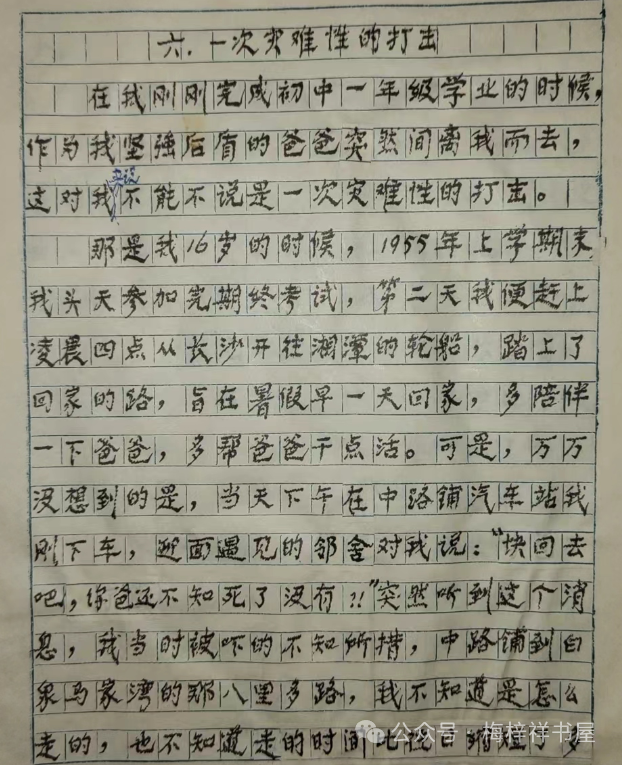 六、一次灾难性的打击
在我刚刚完成初中一年级学业的时候,
作为我坚强后盾的爸爸突然间离我而去,
来说
这对我不能不说是一次灾难性的打击。
那是我16岁的时候,1955年上学期末
我头天参加完期终考试,第二天我便赶上
凌晨四点从长沙开往湘潭的轮船,踏上了
回家的路,旨在暑假早一天回家,多陪伴
一下爸爸,多帮爸爸干点活。可是,万万
没想到的是,当天下午在中路铺汽车站我
刚下车,迎面遇见的邻舍对我说:“快回去
吧,你爸还不知死了没有?!”突然听到这个消
息,我当时被吓的不知所措,中路铺到白
泉马家湾的那八里多路,我不知道是怎么
走的,也不知道走的时间比往日缩短了多
公众号·梅梓祥书屋